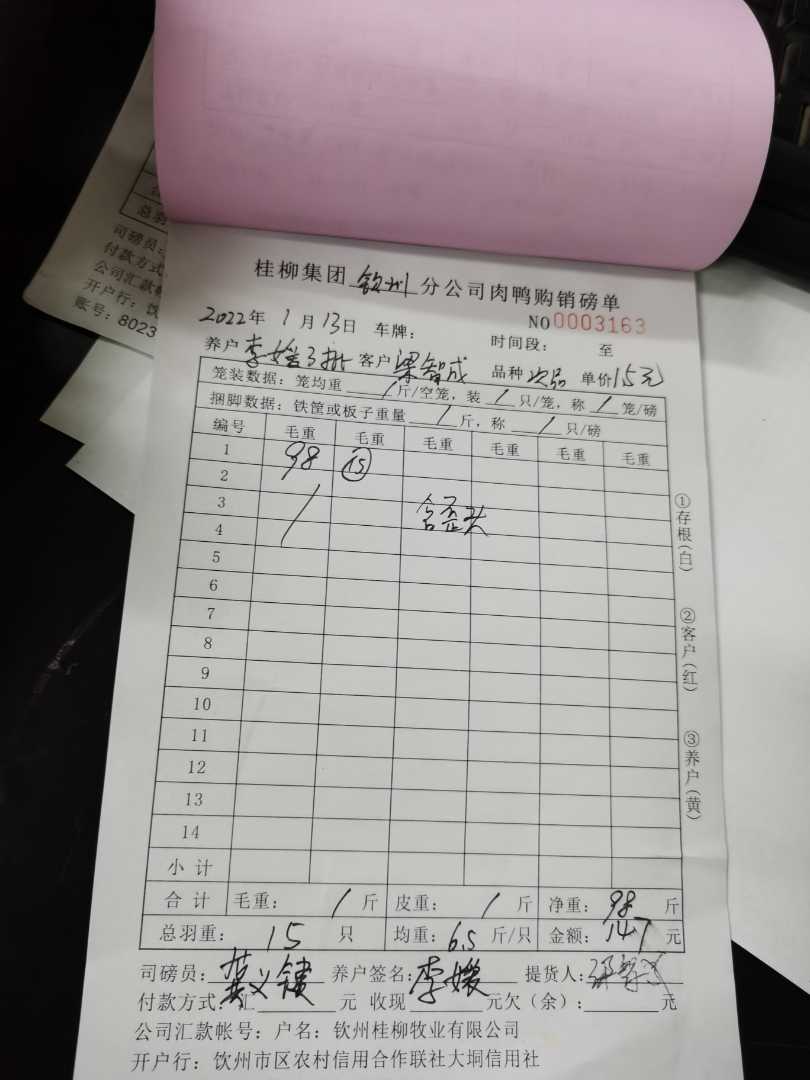 总羽
司磅员:
付款方式
公司汇款帐
开户行: 饮
账号: 8023
桂柳集团 钦州 分公司肉鸭购销磅单
NO0003163
2022年 1月 13日 车牌: 时间段: 至
养户 李嫒3批 客户 梁智成 品种 次品 单价1.5元
笼装数据: 笼均重 / 斤/空笼, 装 / 只/笼, 称 / 笼/磅
捆脚数据: 铁筐或板子重量 / 斤, 称 / 只/磅
编号 毛重 毛重 毛重 毛重 毛重 毛重
1 98 15
2
3 / 含歪头
4
5
6
7
8
9
10
11
12
13
14
小计
合计 毛重: / 斤 皮重: / 斤 净重: 98 斤
总羽重: 15 只 均重: 6.5 斤/只 金额: 147 元
司磅员: 养户签名: 李嫒 提货人:
付款方式: 汇 元 收现 元欠(余): 元
公司汇款帐号: 户名: 钦州桂柳牧业有限公司
开户行: 饮州市区农村信用合作联社大垌信用社
①存根(白)
②客户(红)
③养户(黄)